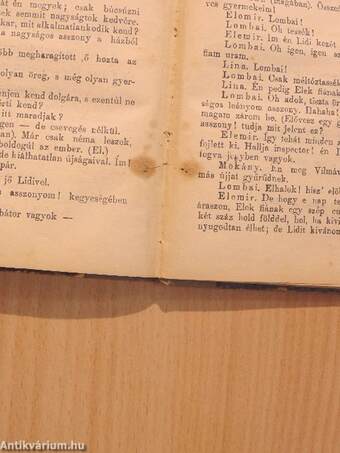 át én megyek; csak búcsúzni
ek semmit nagyságtok kedvére.
ár, mit alkalmatlankodik kend?
nagyságos asszony a házból
őbb megharagított ő hozta az
olyan öreg, s még olyan gyer-
enjen kend dolgára, s ezentúl ne
érti kend?
itt maradjak?
gen — de csevegés nélkül.
an). Már csak néma leszek,
boldogúl az ember. (El.)
de kiálhatatlan újságaival. Im!
pár.
jő Lídivel.
asszonyom! kegyeségében
bátor vagyok —
(magában). Össze
ves gyermekeim!
Elemír. Lombai!
Lombai. Oh tessék!
Elemír. Im én Lidi kezét
Lombai. Oh igen, igen az
fiam uram.
Lina. Lombai!
Lombai. Csak méltóztassék
Lina. Én pedig Elek fiának
Lombai. Oh adok, tiszta örö
ságos leányom asszony. Hahaha!
magam zárom be. (Elővesz egy g
asszony! tudja mit jelent ez?
Elemír. Így tehát minden a
fejlett ki. Hallja inspecter! én I
fogva jegyben vagyok.
Mokány. Én meg Vilmáv
más ujját gyűrűdnek.
Lombai. Elhalok! hisz' elöl
Elemír. De hogy e nap te
áraszon, Elek fiának egy szép cu
két száz hold földdel, bel, ha
nyugodtan élhet; de Lidit kíváno
www.antikvarium.hu
©Antikvárium.hu